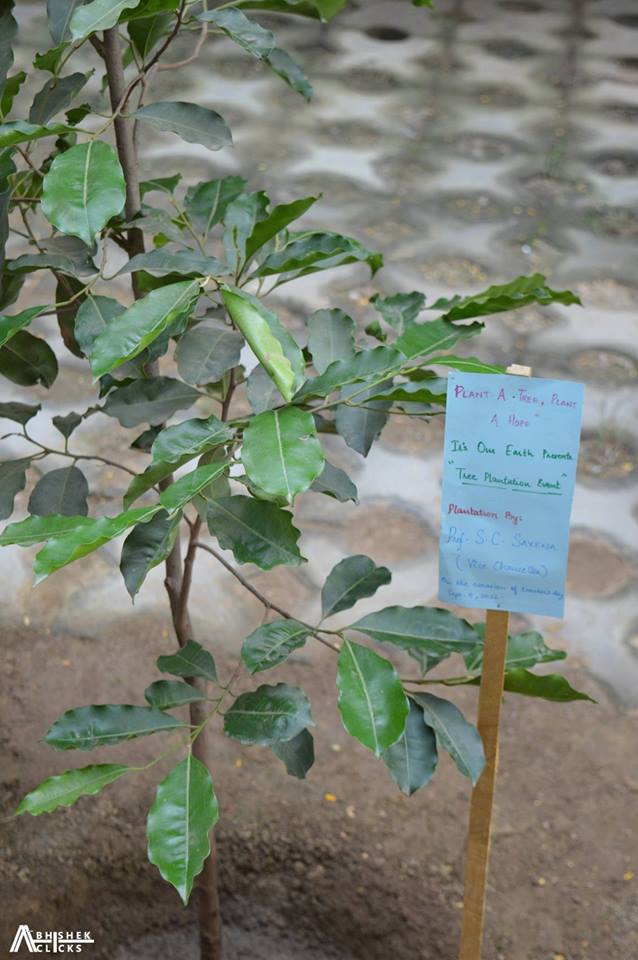 "PLANT A TREE, PLANT
A HOPE"
It's Our Earth Presents
"Tree Plantation Event"
Plantation By:
Prof. S. C. SAXENA
(Vice Chancellor)
on the occasion of teacher's day
Sept. 5, 2012
ABHISHEK
CLICKS